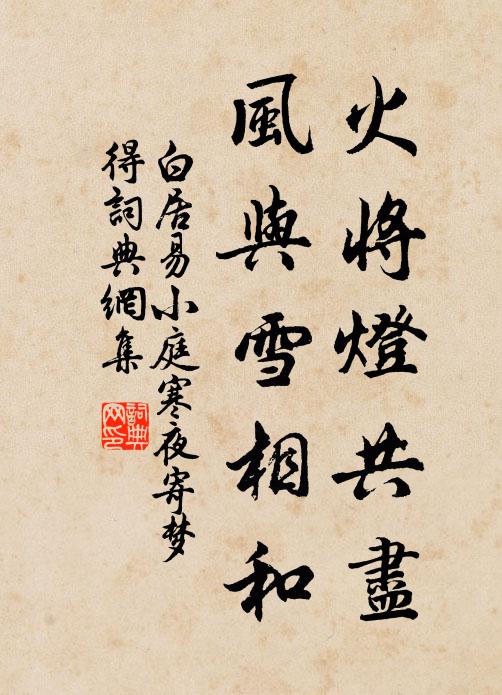 火將燈共盡
風與雪相和
白居易小庭寒夜寄梦
得詞典網集
詞典
网印